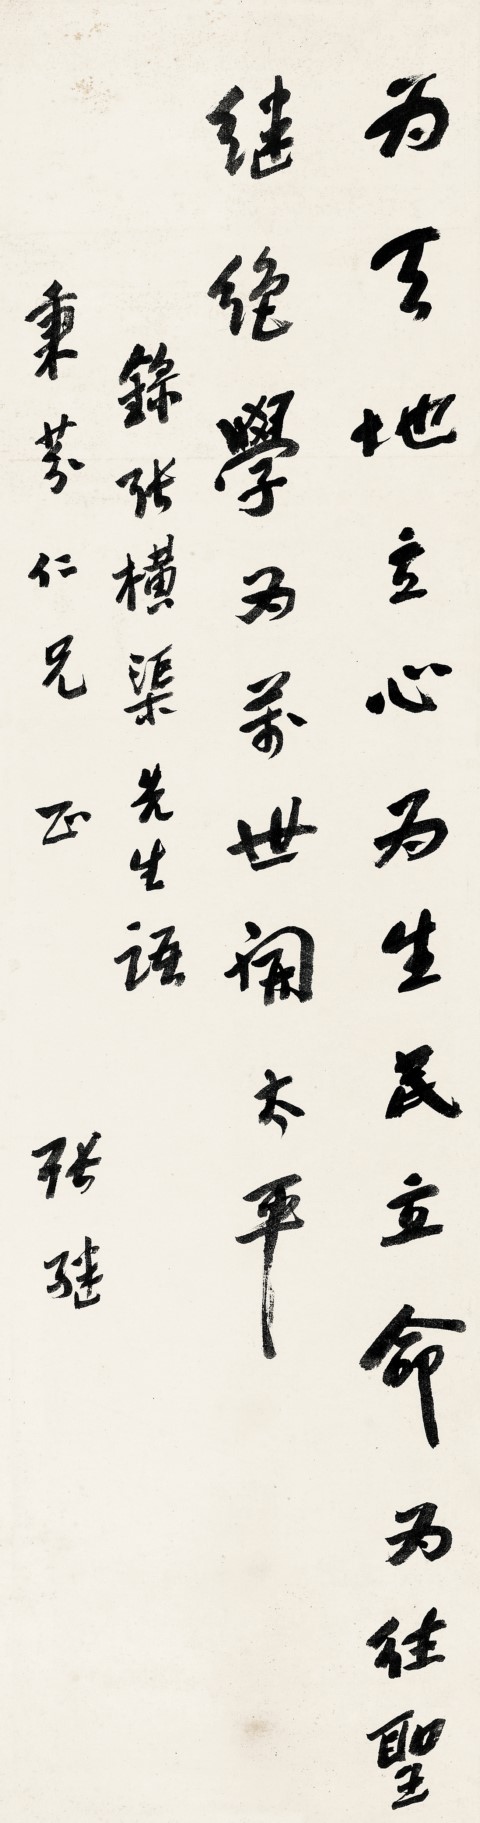 为天地立心为生民立命为往聖
继绝學为萬世開太平
錄张橫渠先生語
秉芬仁兄 正 张继